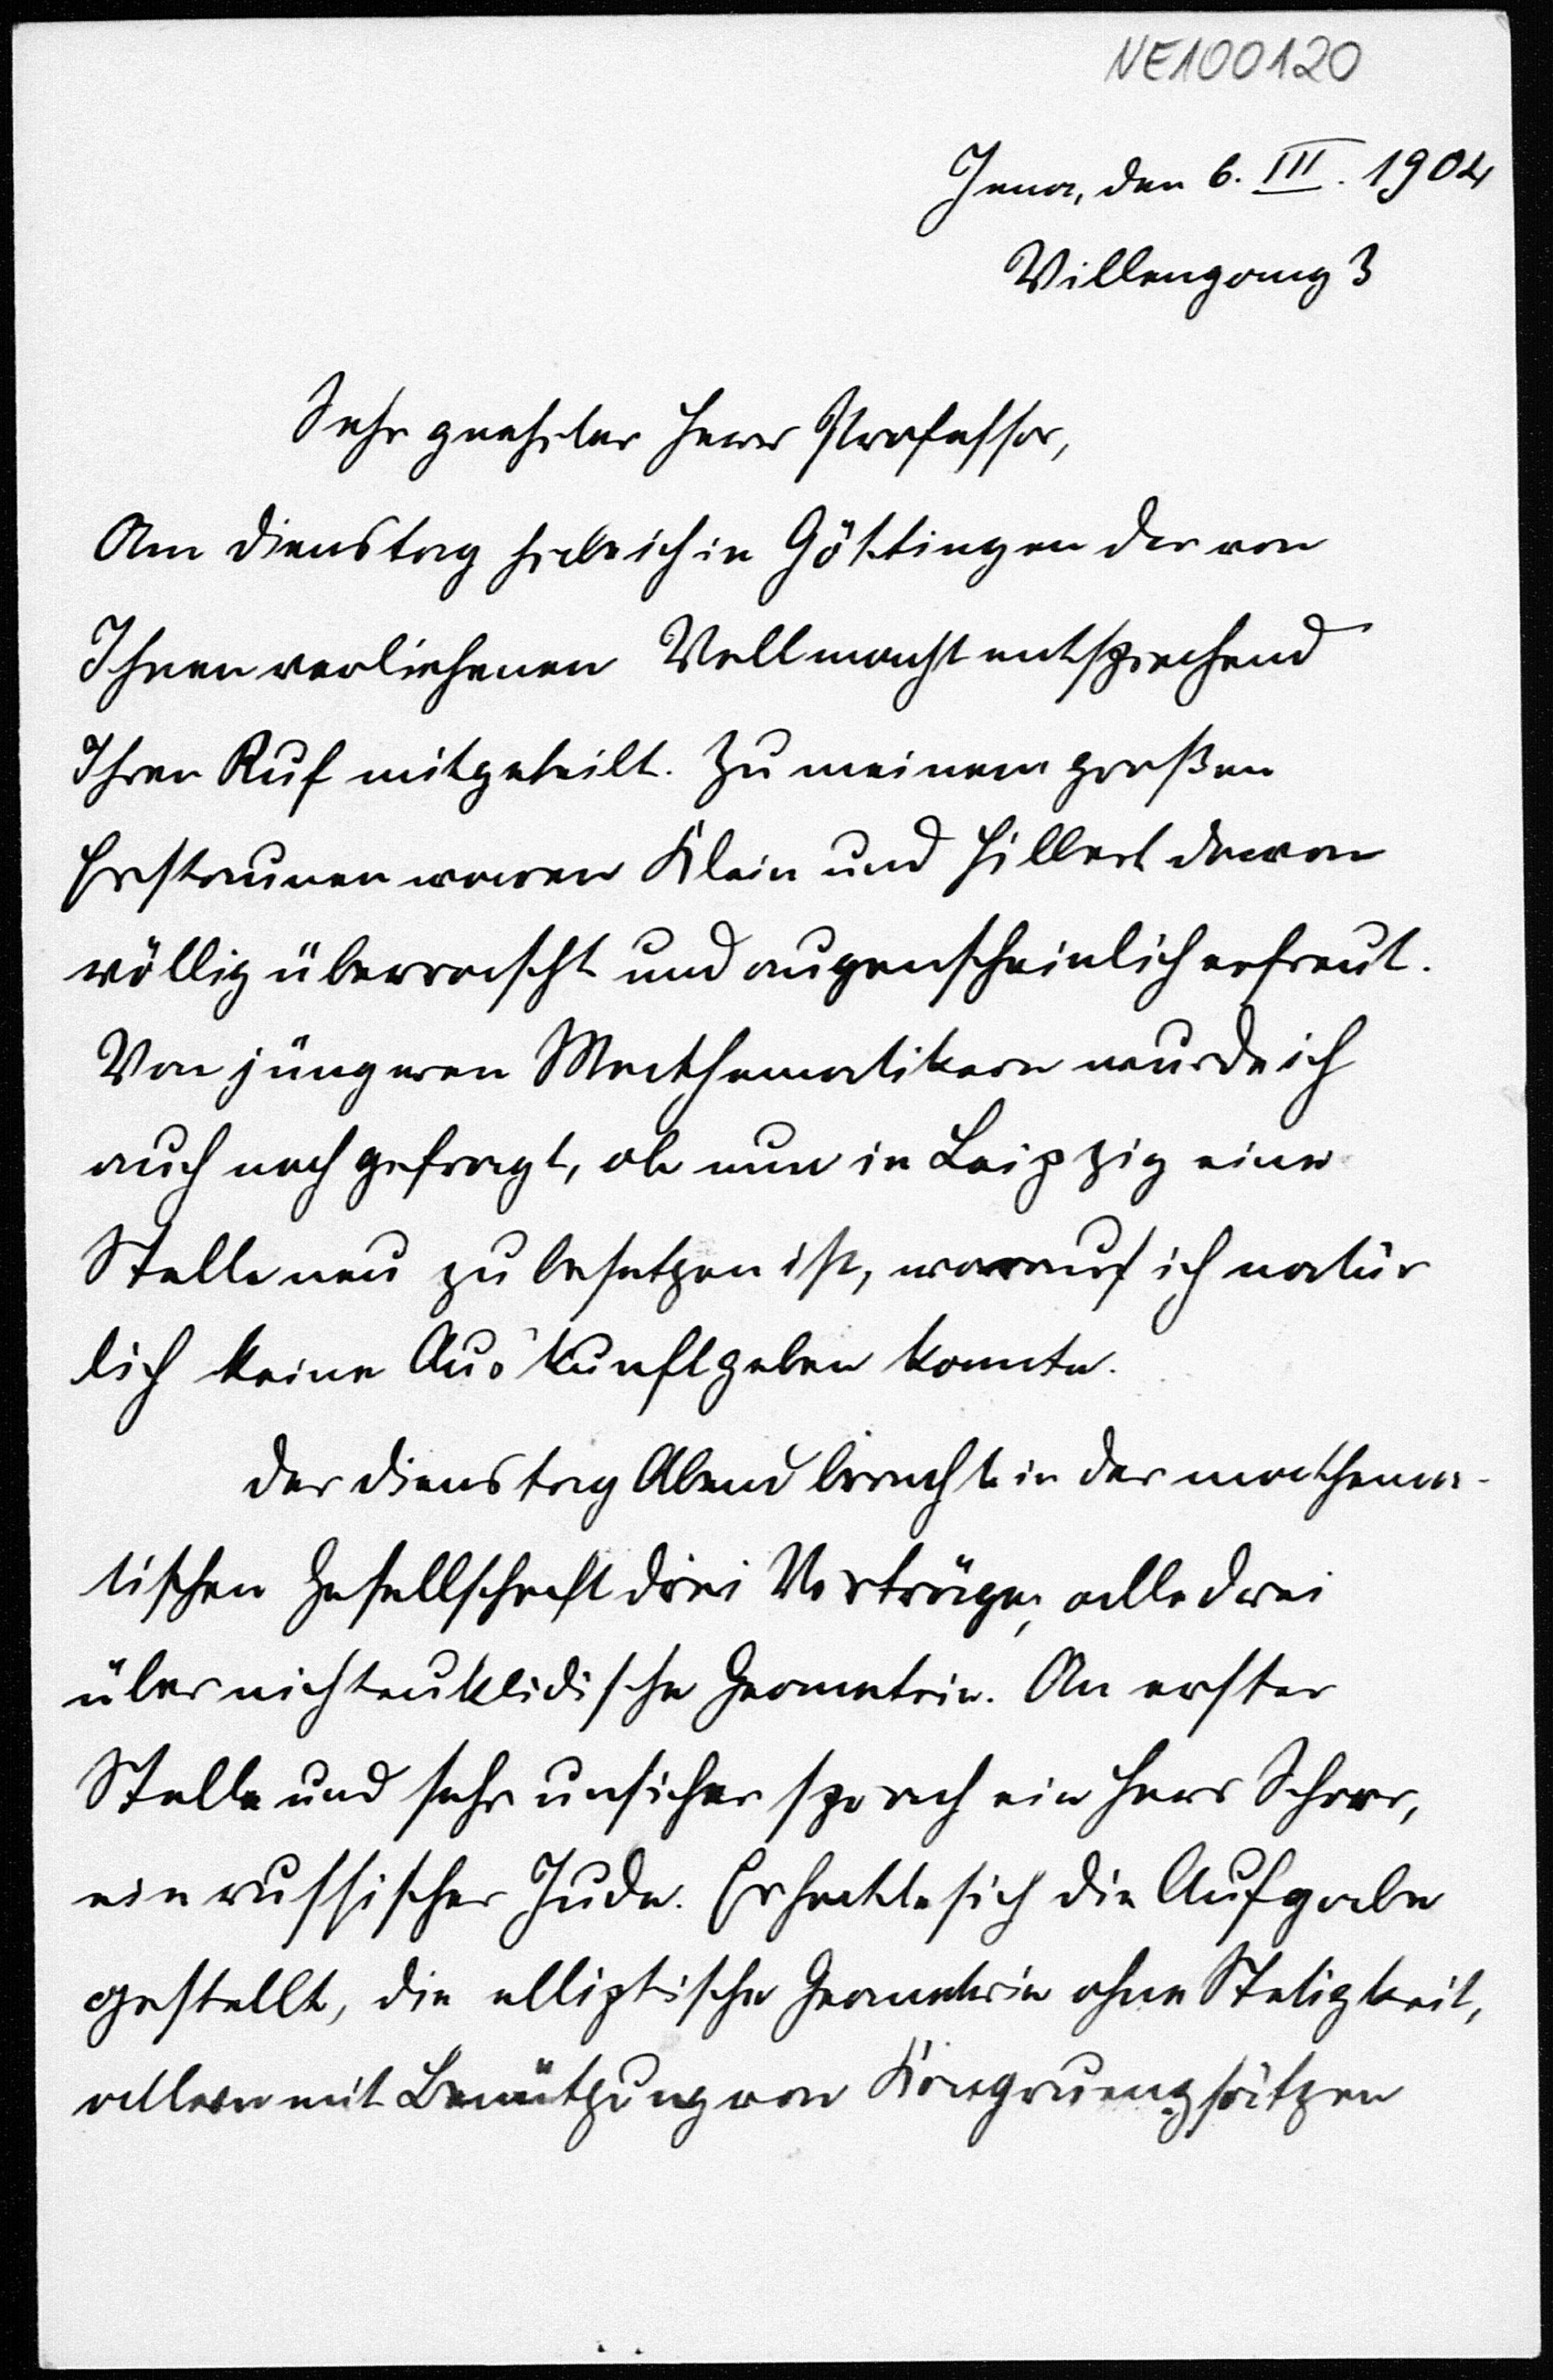 NE100120
Jena, den 6. III. 1904
Villengang 3
Sehr geehrter Herr Professor,
Am Dienstag habe ich in Göttingen der von
Ihnen verliehenen Vollmacht entsprechend
Ihren Ruf mitgeteilt. Zu meinem großen
Erstaunen waren Klein und Hilbert davon
völlig überrascht und augenscheinlich erfreut.
Von jüngeren Mathematikern wurde ich
auch noch gefragt, ob nun in Leipzig eine
Stelle neu zu besetzen ist, worauf ich natür
lich keine Auskunft geben konnte.
Der Dienstag Abend brachte in der mathema-
tischen Gesellschaft drei Vorträge, alle drei
über nichteuklidische Geometrie. An erster
Stelle und sehr unsicher sprach ein Herr Schorr,
ein russischer Jude. Er hatte sich die Aufgabe
gestellt, die elliptische Geometrie ohne Stetigkeit,
allein mit Benützung von Kongruenzsätzen